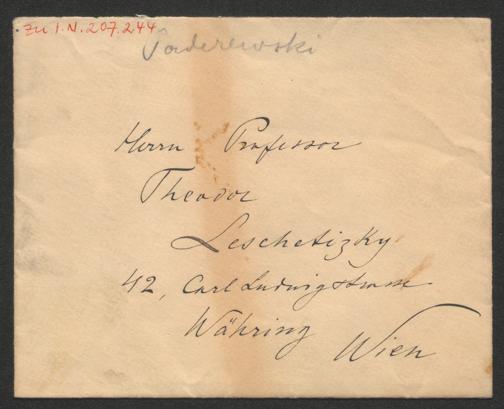 Zu I.N. 207.244
Paderewski
Herrn Professor
Theodor
Leschetizky
42, Carl Ludwigstrasse
Währing
Wien